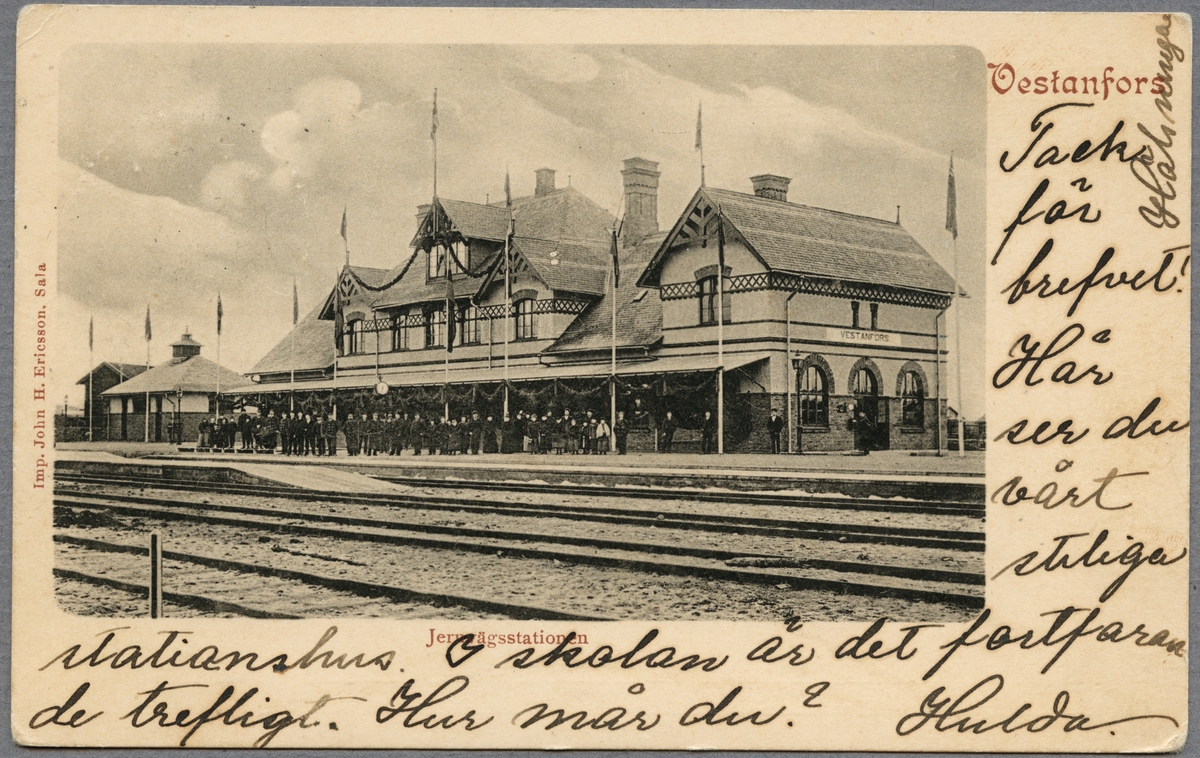 Vestanfors
Tack
för
brefvet!
Här
ser du
vårt
stiliga
stationshus. I skolan är det fortfaran
de trefligt. Hur mår du? Hulda.
Jernvägsstationen
VESTANFORS
Imp. John H. Ericsson, Sala